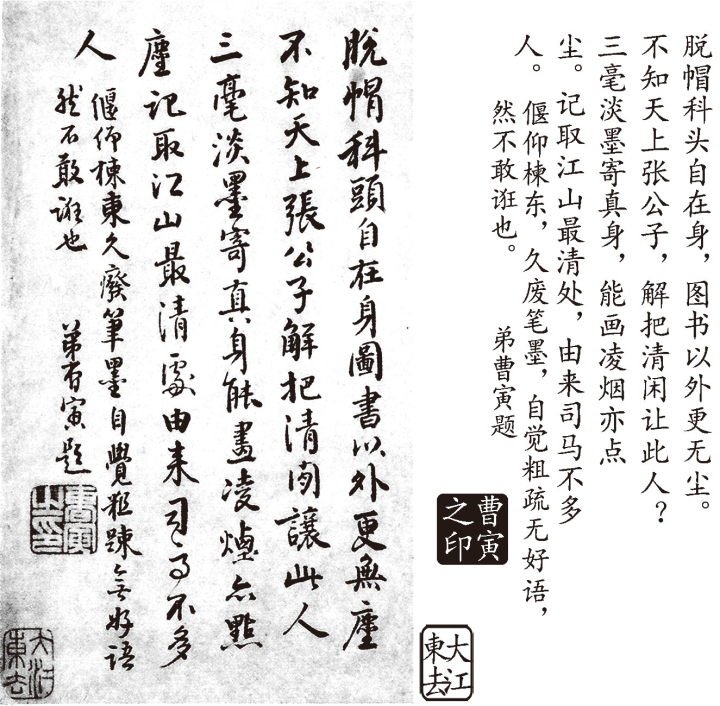 脱帽科头自在身，图书以外更无尘。
不知天上张公子，解把清闲让此人？
三毫淡墨寄真身，能画凌烟亦点
尘。记取江山最清处，由来司马不多
人。 偃仰楝东，久废笔墨，自觉粗疏无好语，
然不敢诳也。 弟曹寅题
曹寅
之印
大江
東去
脫帽科頭自在身圖書以外更無塵
不知天上張公子解把清閒讓此人
三毫淡墨寄真身能畫凌煙亦點
塵記取江山最清處由来司馬不多
人 偃仰楝東久廢筆墨自覺粗踈無好語
然不敢誑也 弟曺寅題
曹寅
之印
大江
東去